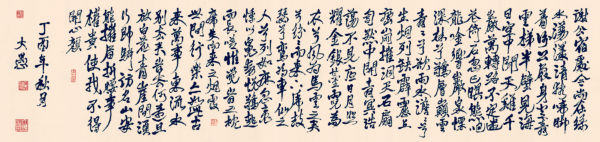 谢公宿处今尚在渌
水荡漾清猿啼脚
著谢公屐身登青
云梯半壁见海
日空中闻天鸡千
岩万转路不定迷
花倚石忽已暝熊咆
龙吟殷岩泉慄
深林兮惊层巅云
青青兮欲雨水澹澹兮
生烟列缺霹雳丘
峦崩摧洞天石扉
訇然中开青冥浩
荡不见底日月照
耀金银台霓为
衣兮风为马云之君
兮纷纷而来下虎鼓
瑟兮鸾回车仙之
人兮列如麻忽魂
悸以魄动恍惊起
而长嗟惟觉时之枕
席失向来之烟霞
世间行乐亦如此古
来万事东流水
别君去兮何时还且
放白鹿青崖间须
行即骑访名山安
能摧眉折腰事
权贵使我不得
开心颜
丁酉年秋月